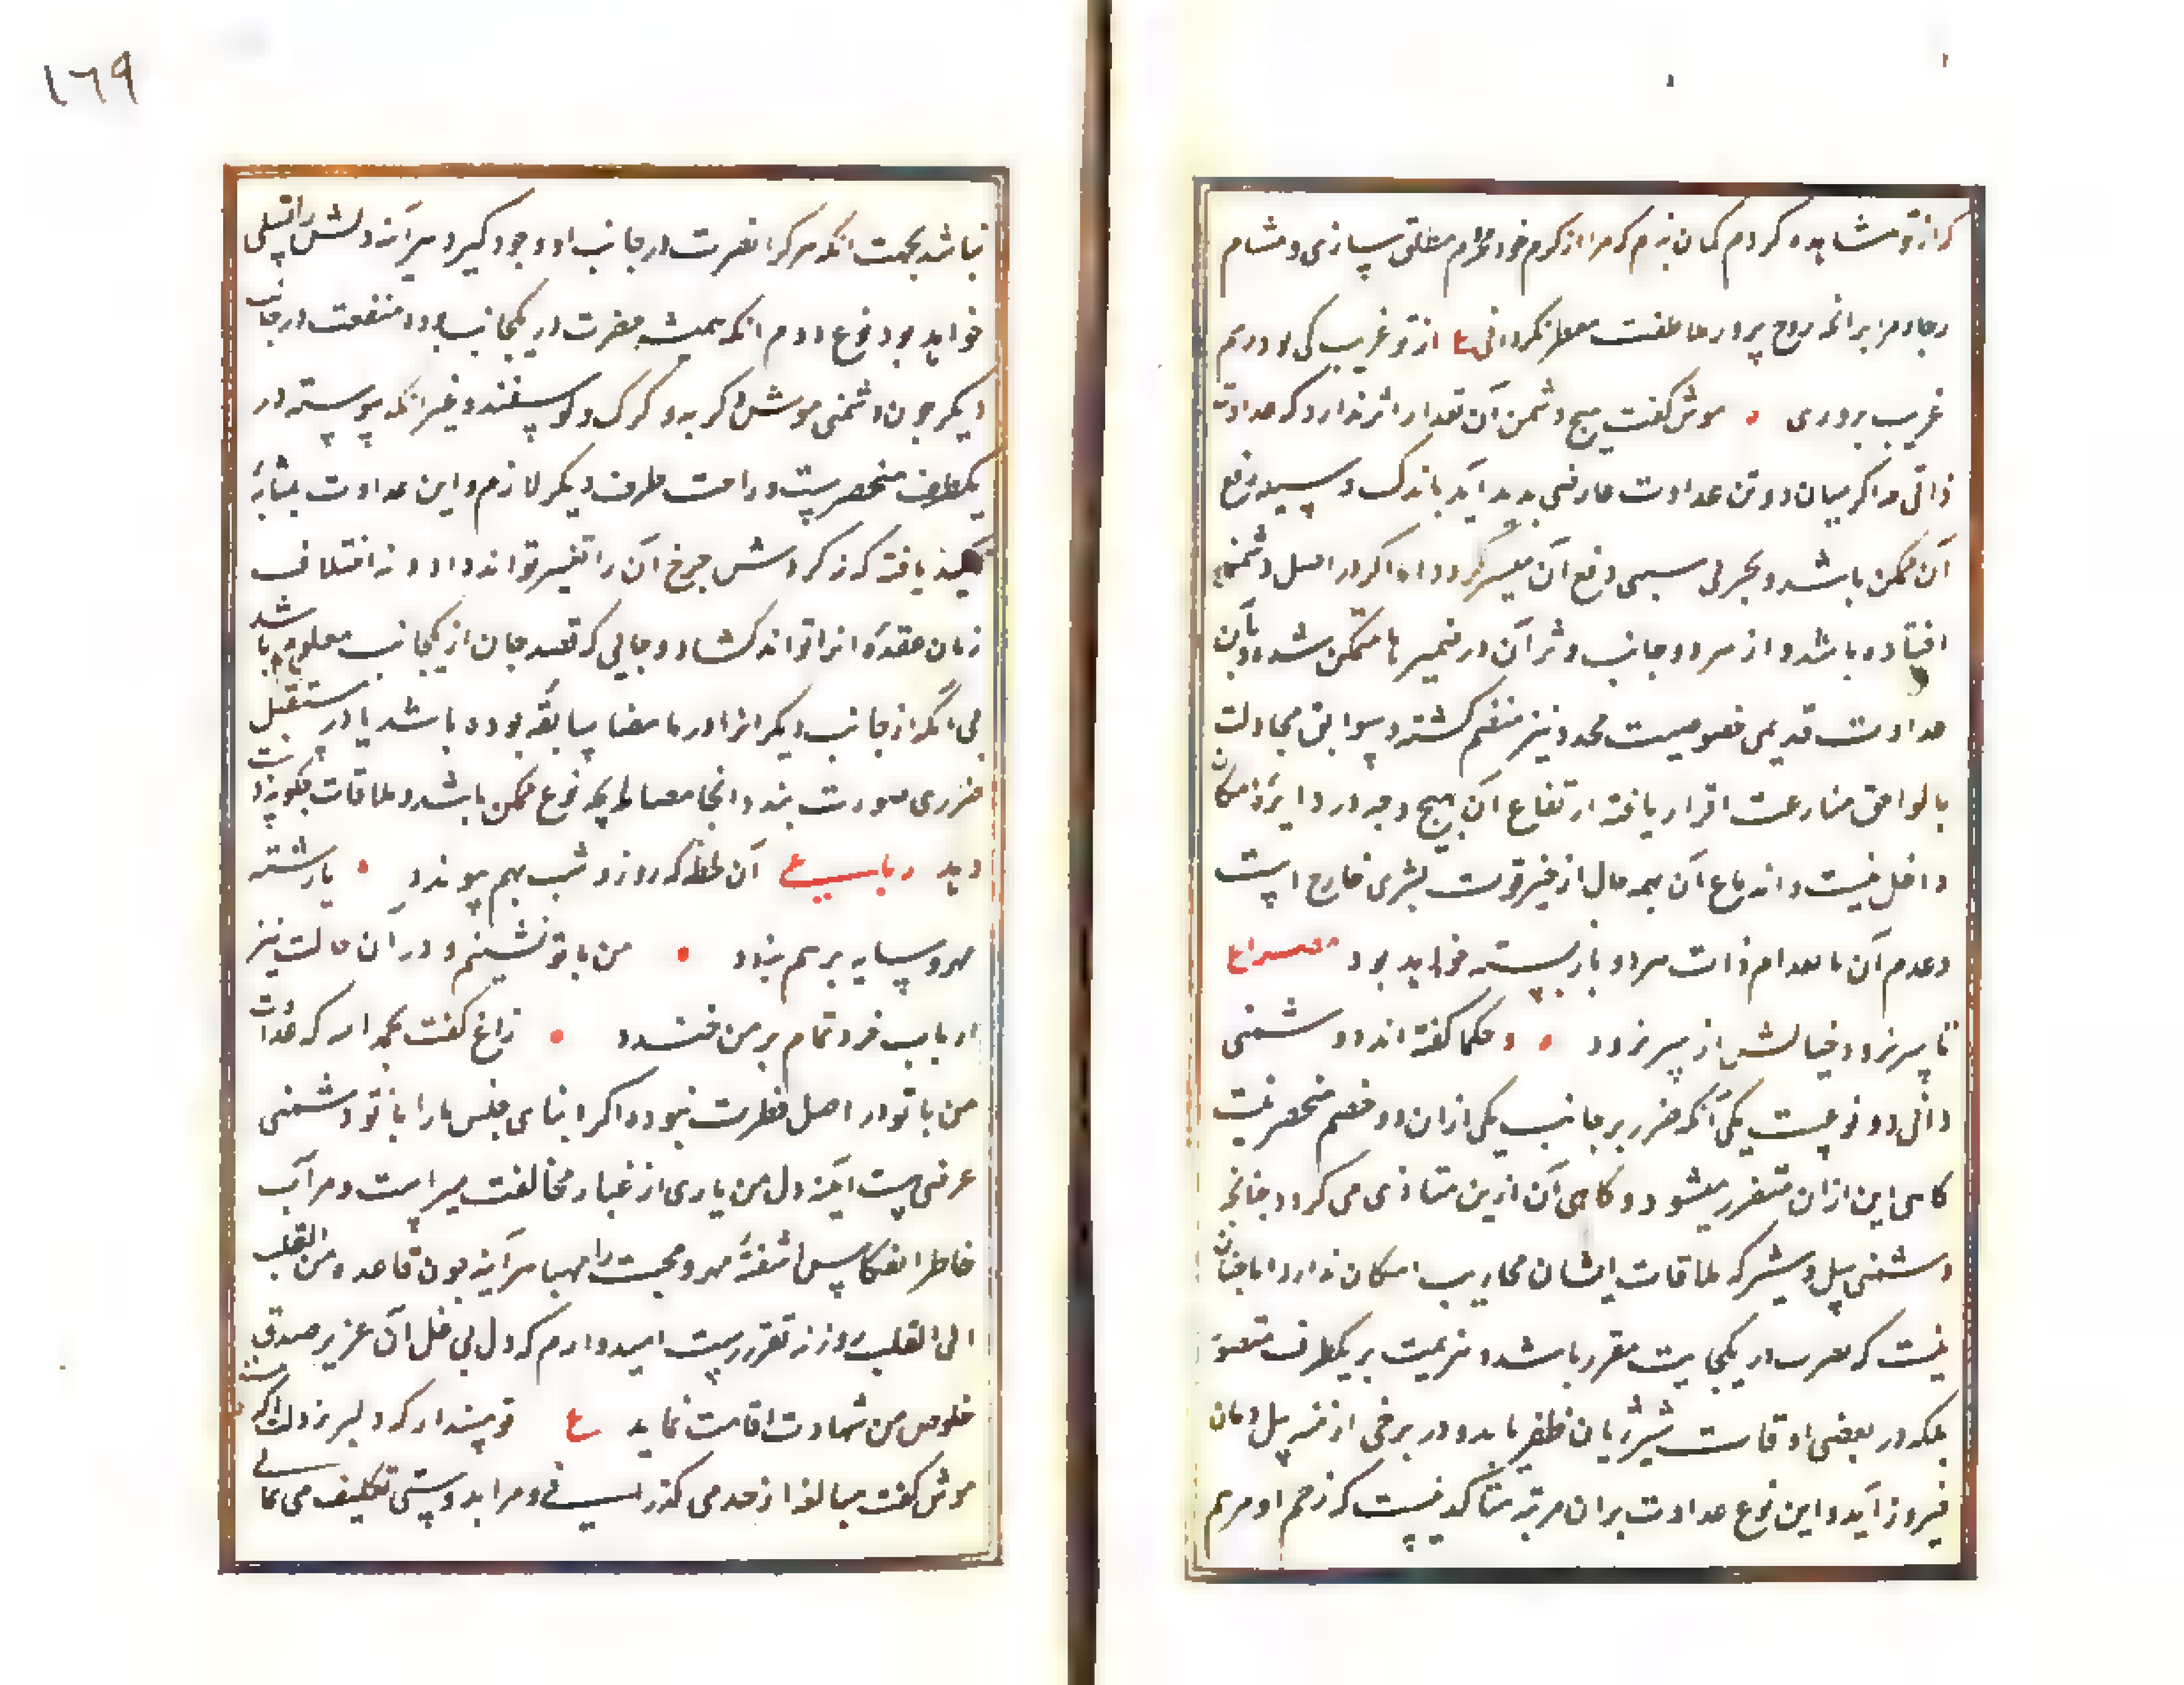 که از تو مشاهده کردم گمان نبرم که مرا از کرم خود محروم مطلق سازی و مشام
رجاء مرا برائحه روح پرور عاطفت معطر نکردانی ع از تو غریب کی بود رسم
غریب پروری • موش کفت هیچ دشمن آن مقدار اثر ندارد که عداوت
ذاتی چه اکر میان دو تن عداوت عارضی پدید آید باندک وسیله رفع
آن ممکن باشد و بجزئی سببی دفع آن میسر کردد اما اکر در اصل دشمنی
افتاده باشد و از هر دو جانب اثر آن در ضمیرها متمکن شده و بآن
عداوت قدیمی خصومت مجدد نیز منضم کشته و سوابق مجادلت
بالواحق منازعت اقرار یافته ارتفاع آن بهیچ وجه در دایره امکان
داخل نیست و اندفاع آن بهمه حال از حیز قوت بشری خارج است
و عدم آن بانعدام ذات هر دو باز بسته خواهد بود مصراع
تا سر نرود خیالش از سر نرود • و حکما کفته اند دشمنی
ذاتی دو نوعست یکی آنکه ضرر بر جانب یکی از ان دو خصم منحصر نیست
کاهی این از ان متضرر میشود و کاهی آن ازین متاذی می کردد چنانچه
دشمنی پیل و شیر که ملاقات ایشان بی محاربه امکان ندارد اما چنان
نیست که نصرت در یکجانب مقرر باشد و هزیمت بر یکطرف
بلکه در بعضی اوقات شیر ژیان ظفر یابد و در برخی ازمنه پیل دمان
فیروز آید و این نوع عداوت بران مرتبه متاکد نیست که زخم او مرهم
نباشد بجهت آنکه هر کرا نصرت در جانب او وجود کیرد هر آینه دلش را تسلی
خواهد بود نوع دوم آنکه همیشه مضرت در یکجانب بود و منفعت در جانب
دیکر چون دشمنی موش و کربه و کرک و کوسفند و غیر آنکه پیوسته در
یکطرف منحصرست و راحت طرف دیکر لازم و این عداوت بمثابه
تاکید یافته که نه کردش چرخ آن را تغییر تواند داد و نه اختلاف
زمان عقده آنرا تواند کشاد و جایی که قصد جان از یکجانب معلوم باشد
بی آنکه از جانب دیکر آنرا در ما مضا سابقه بوده باشد یا در مستقبل
ضرری صورت بندد آنجا مصالحه بچه نوع ممکن باشد و ملاقات چکونه دست
دهد رباعی آن لحظه که روز و شب بهم پیوندد • یا رشته
مهر و سایه بر هم بندد • من با تو نشینم و در آن حالت نیز
ارباب خرد تمام بر من خندد • زاغ کفت بحمد الله که عداوت
من با تو در اصل فطرت نبوده و اکر ابنای جنس ما را با تو دشمنی
عرضی هست آینه دل من باری از غبار مخالفت مبراست و مرآت
خاطر انعکاس اشعه مهر و محبت را مهیا هر آینه چون قاعده من القلب
الی القلب روزنه مقررست امیدوارم که دل بی غل آن عزیر بصدق
خلوص من شهادت اقامت نماید ع تو مپندار که دلبر ز دلت
موش کفت مبالغه از حد می کذرانی و مرا بدوستی تکلیف می نمایی
١٦٩